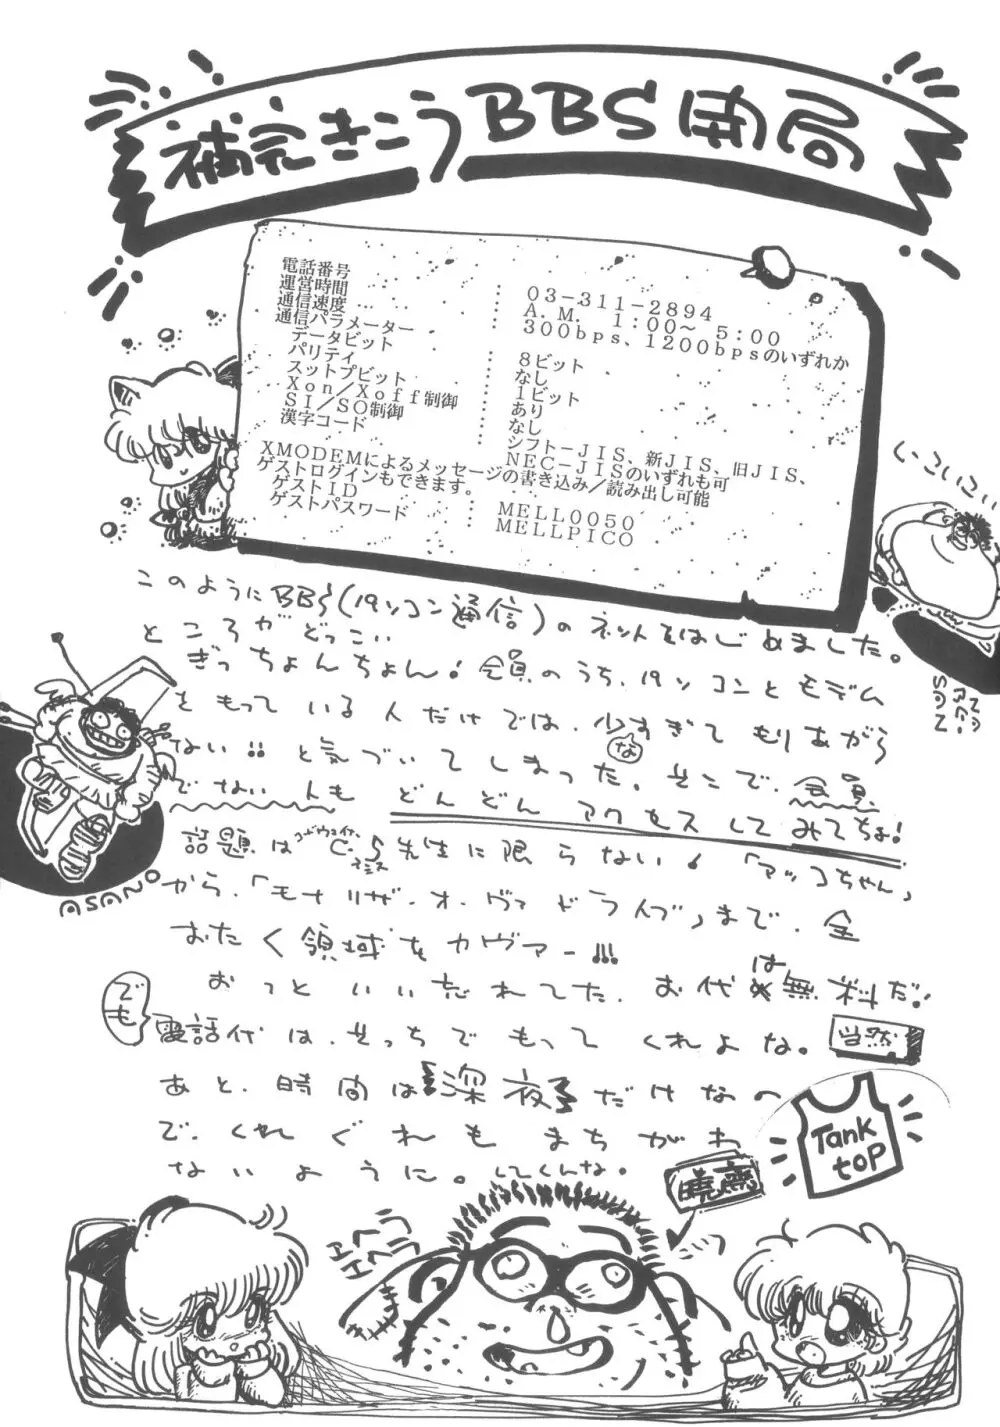 補完きこうBBS開局
電話番号 : 03-311-2894
運営時間 : A.M. 1:00~ 5:00
通信速度 : 300bps、1200bpsのいずれか
通信パラメーター
データビット : 8ビット
パリティ : なし
スットプビット : 1ビット
Xon/Xoff制御 : あり
SI/SO制御 : なし
漢字コード : シフト-JIS、新JIS、旧JIS、
NEC-JISのいずれも可
XMODEMによるメッセージの書き込み/読み出し可能
ゲストログインもできます。
ゲストID : MELL0050
ゲストパスワード : MELLPICO
いこいこい
このようにBBS(パソコン通信)のネットをはじめました。
ところがどっこい
ぎっちょんちょん!会員のうち、パソコンとモデム
をもっている人だけでは、少なすぎてもりあがら
ない!!と気づいてしまった。そこで、会員
でない人もどんどんアクセスしてみてちょ!
ASANO
話題はC.スミス先生に限らない!「アッコちゃん」
から、「モナリザ・オーヴァドライブ」まで、全
おたく領域をカヴァー!!!
おっといい忘れてた、お代は無料だ!
でも電話代は、そっちでもってくれよな。当然
あと、時間は深夜だけなの
で、くれぐれもまちがわ
ないように。してくんな。
Tank
top
暁斎
エヘラ
エヘラ